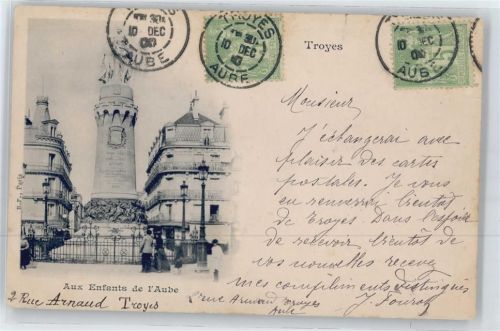 TROYES
10 DEC
AUBE
TROYES
10 DEC
AUBE
10 DEC
AUBE
Troyes
Monsieur
J'échangerai avec
plaisir des cartes
postales. Je vous
en renverrai bientôt
de Troyes. Dans l'espoir
de recevoir bientôt de
vos nouvelles recevez
mes compliments distingués
J.
B.F., Paris
Aux Enfants de l'Aube
2 Rue Arnaud Troyes
2 rue Arnaud Troyes
Aube